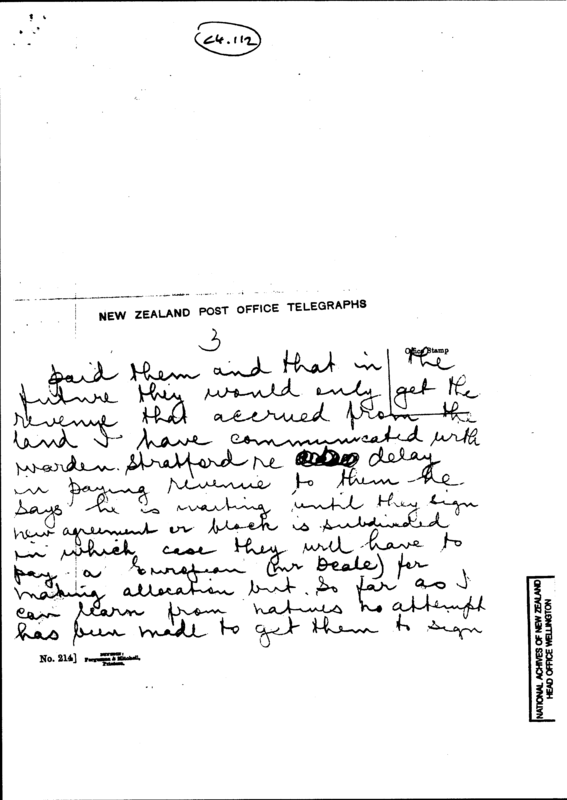 C4.112
NEW ZEALAND POST OFFICE TELEGRAPHS
3
Office Stamp
paid them and that in the
future they would only get the
revenue that accrued from the
land I have communicated with
warden Stratford re delay
in paying revenue to them he
says he is waiting until they sign
new agreement or block is subdivided
in which case they will have to
pay a European (Mr Deale) for
making allocation but. So far as I
can learn from natives no attempt
has been made to get them to sign
No. 214]
Ferguson & Mitchell,
NATIONAL ACHIVES OF NEW ZEALAND
HEAD OFFICE WELLINGTON